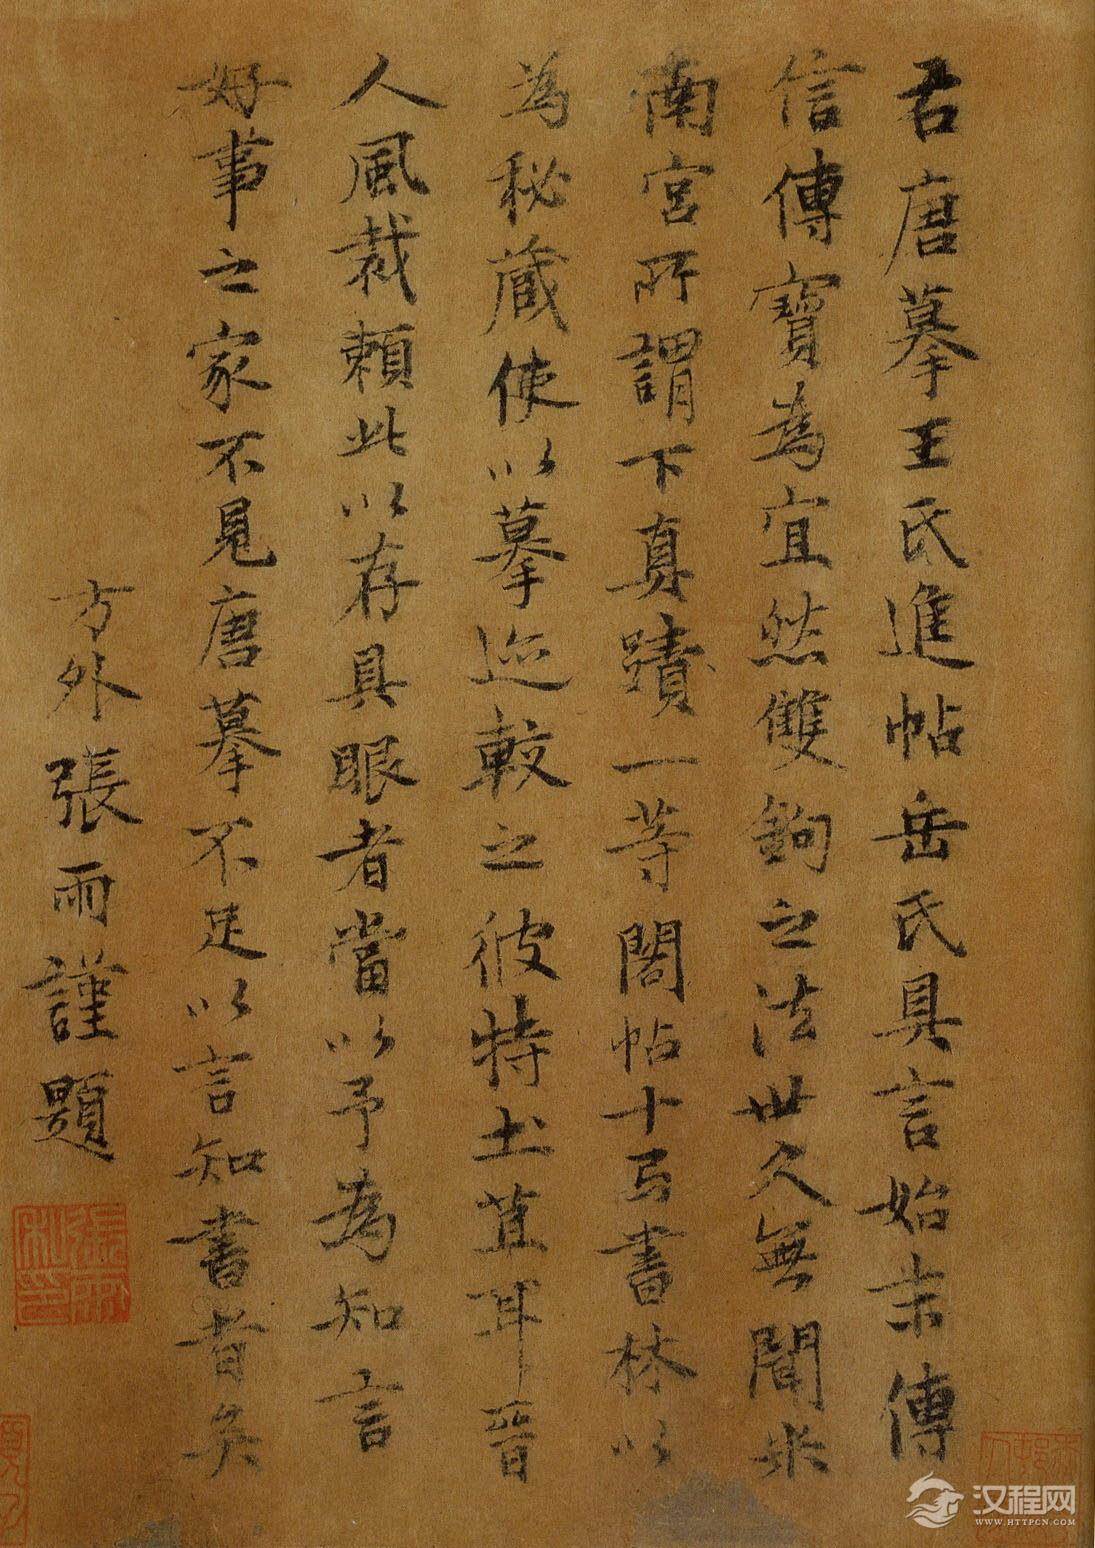 右唐摹王氏進帖岳氏具言始末傳
信傳寶為宜然雙鉤之法世久無聞米
南宮所謂下真蹟一等閣帖十弓書林以
為秘藏使以摹迹較之彼特土苴耳晉
人風裁賴此以存具眼者當以予為知言
好事之家不見唐摹不足以言知書者矣
方外張雨謹題
汉程网
WWW.HTTPCN.COM